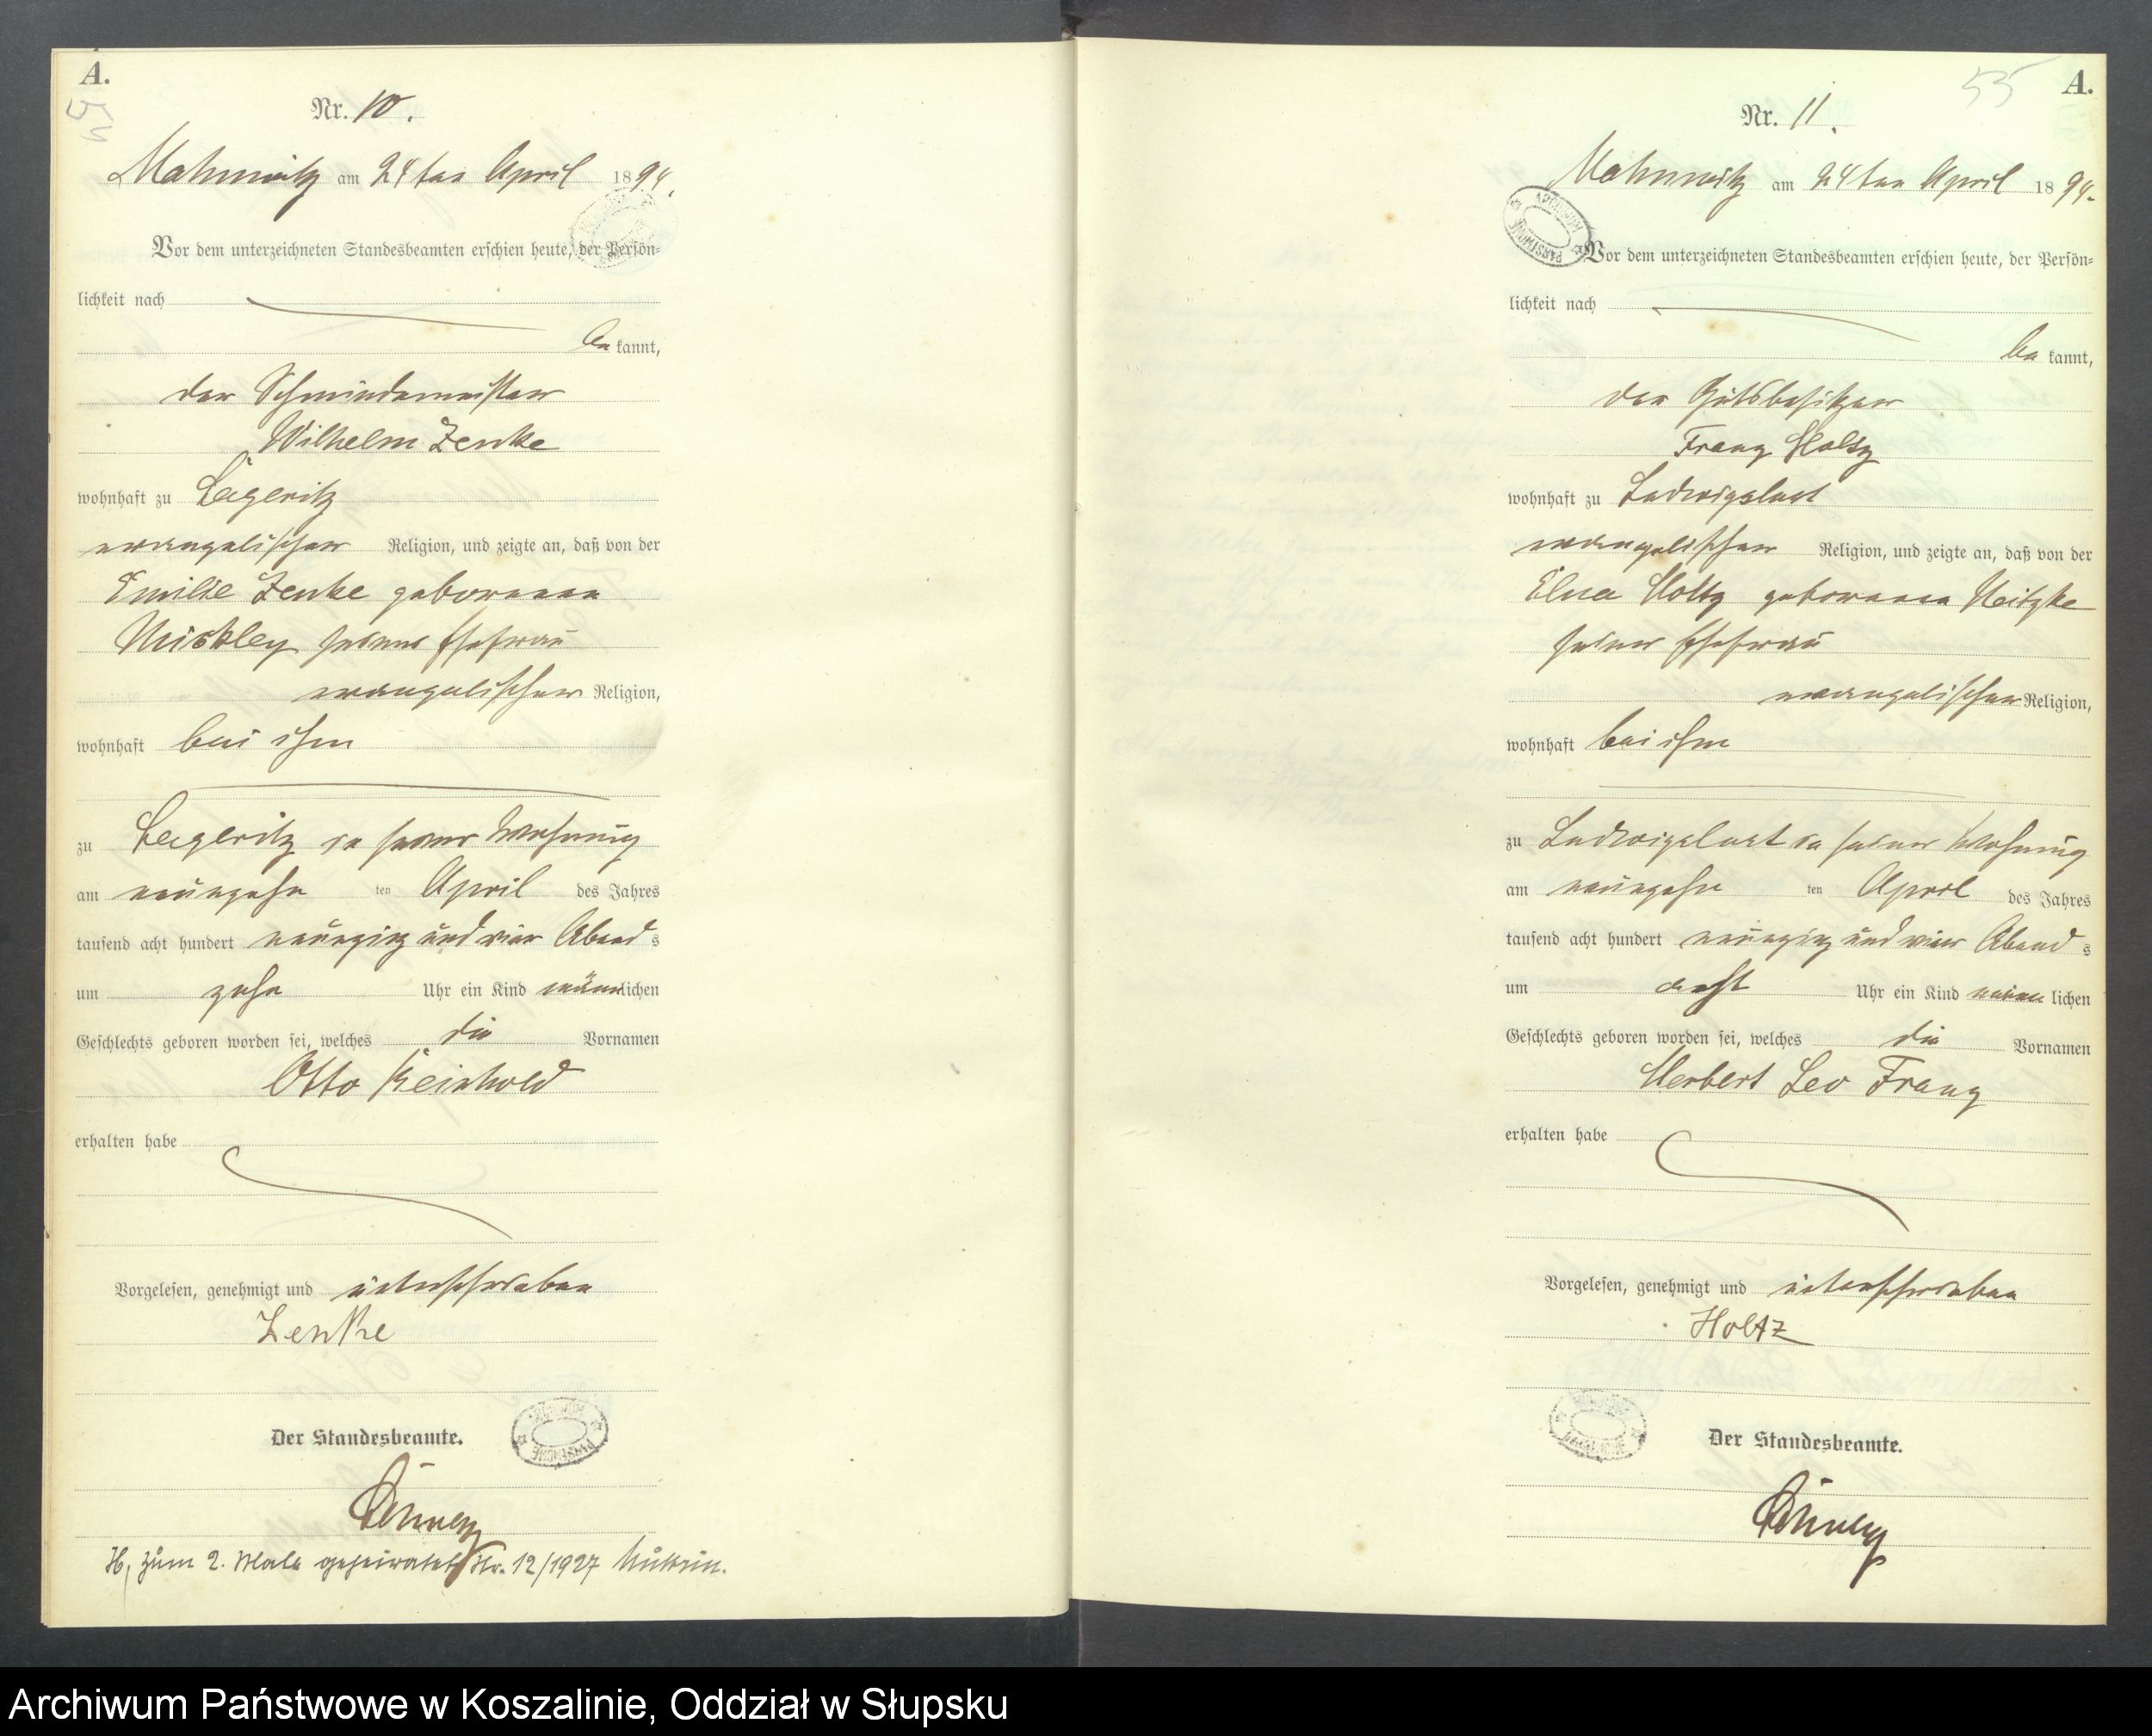 A.
54
Nr. 10.
Mahnwitz am 24ten April 1894.
Vor dem unterzeichneten Standesbeamten erschien heute, der Persön-
lichkeit nach
be kannt,
der Schmiedemeister
Wilhelm Zenke
wohnhaft zu Lägeritz
evangelischer Religion, und zeigte an, daß von der
Emilie Zenke geborenen
Mickley seiner Ehefrau
evangelischer Religion,
wohnhaft bei ihm
zu Legeritz in seiner Wohnung
am neunzehn ten April des Jahres
tausend acht hundert neunzig und vier Abend s
um zehn Uhr ein Kind männlichen
Geschlechts geboren worden sei, welches die Vornamen
Otto Reinhold
erhalten habe
Vorgelesen, genehmigt und unterschrieben
Zenke
Der Standesbeamte.
H, zum 2. Male geheiratet Nr. 12/1927
55
A.
Nr. 11.
Mahnwitz am 24ten April 1894.
Vor dem unterzeichneten Standesbeamten erschien heute, der Persön-
lichkeit nach
be kannt,
der Gutsbesitzer
Franz Holtz
wohnhaft zu Ludwigslust
evangelischer Religion, und zeigte an, daß von der
Elua Holtz geborenen Neitzke
seiner Ehefrau
evangelischer Religion,
wohnhaft bei ihm
zu Ludwigslust in seiner Wohnung
am neunzehn ten April des Jahres
tausend acht hundert neunzig und vier Abend s
um acht Uhr ein Kind männ lichen
Geschlechts geboren worden sei, welches die Vornamen
Herbert Leo Franz
erhalten habe
Vorgelesen, genehmigt und unterschrieben
Holtz
Der Standesbeamte.
Archiwum Państwowe w Koszalinie, Oddział w Słupsku